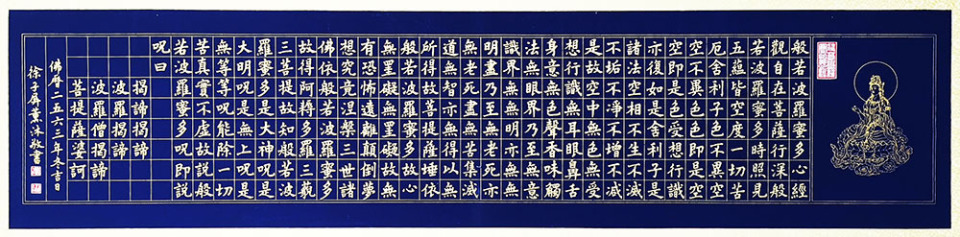 般若波羅蜜多心經
觀自在菩薩行深般
若波羅蜜多時照見
五蘊皆空度一切苦
厄舍利子色不異空
空不異色色即是空
空即是色受想行識
亦復如是舍利子是
諸法空相不生不滅
不垢不淨不增不減
是故空中無色無受
想行識無眼耳鼻舌
身意無色聲香味觸
法無眼界乃至無意
識界無無明亦無無
明盡乃至無老死亦
無老死盡無苦集滅
道無智亦無得以無
所得故菩提薩埵依
般若波羅蜜多故心
無罣礙無罣礙故無
有恐怖遠離顛倒夢
想究竟涅槃三世諸
佛依般若波羅蜜多
故得阿耨多羅三藐
三菩提故知般若波
羅蜜多是大神呪是
大明呪是無上呪是
無等等呪能除一切
苦真實不虛故說般
若波羅蜜多呪即說
呪曰
揭諦揭諦
波羅揭諦
波羅僧揭諦
菩提薩婆訶
佛曆二五六三年冬吉日
徐子屏薰沐敬書